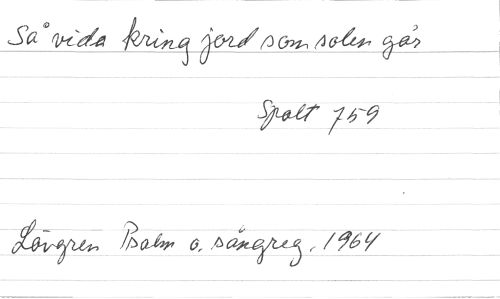 Så vida kring jord som solen går
Spalt 759
Lövgren Psalm o. sångreg. 1964